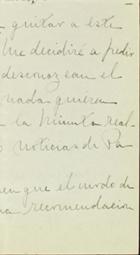 quitar a este
me decidiré a pedir
desconozcan el
nada quieren
la Minuta real
noticias de Pa
en que el modo de
recomendacion